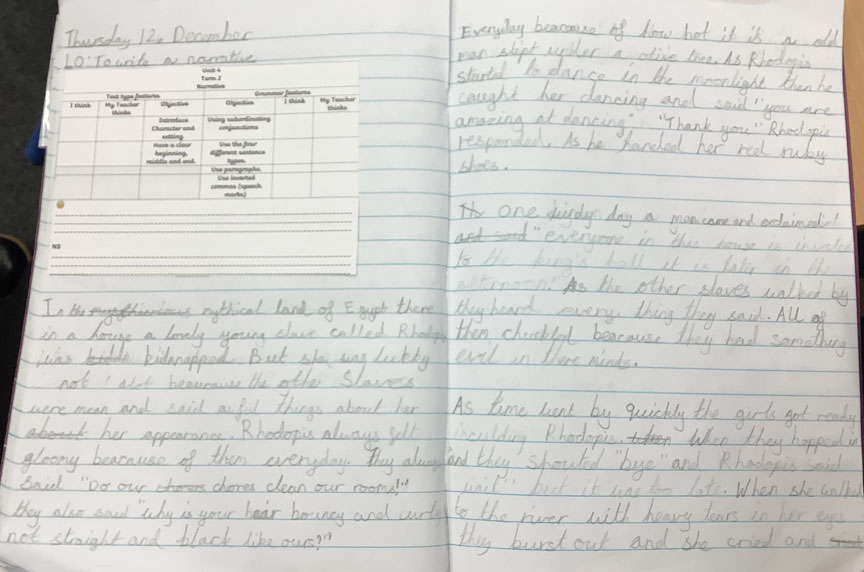 Thursday 12th December
LO: To write a narrative
Unit 4
Term 2
Narrative
Text type features Grammar features
I think My Teacher thinks Objective Objective I think My Teacher thinks
Introduce Character and setting Using subordinating conjunctions
Have a clear beginning, middle and end. Use the four different sentence types.
Use paragraphs.
Use inverted commas (speech marks)
NS
In the mythical land of Egypt there
in a house a lovely young slave called Rhodopis
was kidnapped. But she was lukky
not because the other Slaves
were mean and said awful things about her
about her appearance. Rhodopis always felt
gloomy bearcause of them everyday. They always
said "Do our chores clean our rooms!"
they also said "why is your hair bouncy and curly
not straight and black like ours?"
Everyday bearcause of how hot it is a old
man slept under a olive tree. As Rhodopis
started to dance in the moonlight then he
caught her dancing and said "you are
amazing at dancing" "Thank you" Rhodopis
responded. As he handed her red ruby
shoes.
one day a man came and exclaimed
and said "everyone in this house is invited
to the king's ball it is later in the
afternoon." As the other slaves walked by
they heard every thing they said. All of
them chuckled bearcause they had something
evil in there minds.
As time went by quickly the girls got ready
inculding Rhodopis. when When they hopped in
and they shouted "bye" and Rhodopis said
"wait" but it was to late. When she walked
to the river with heavy tears in her eyes
they burst out and she cried and cried